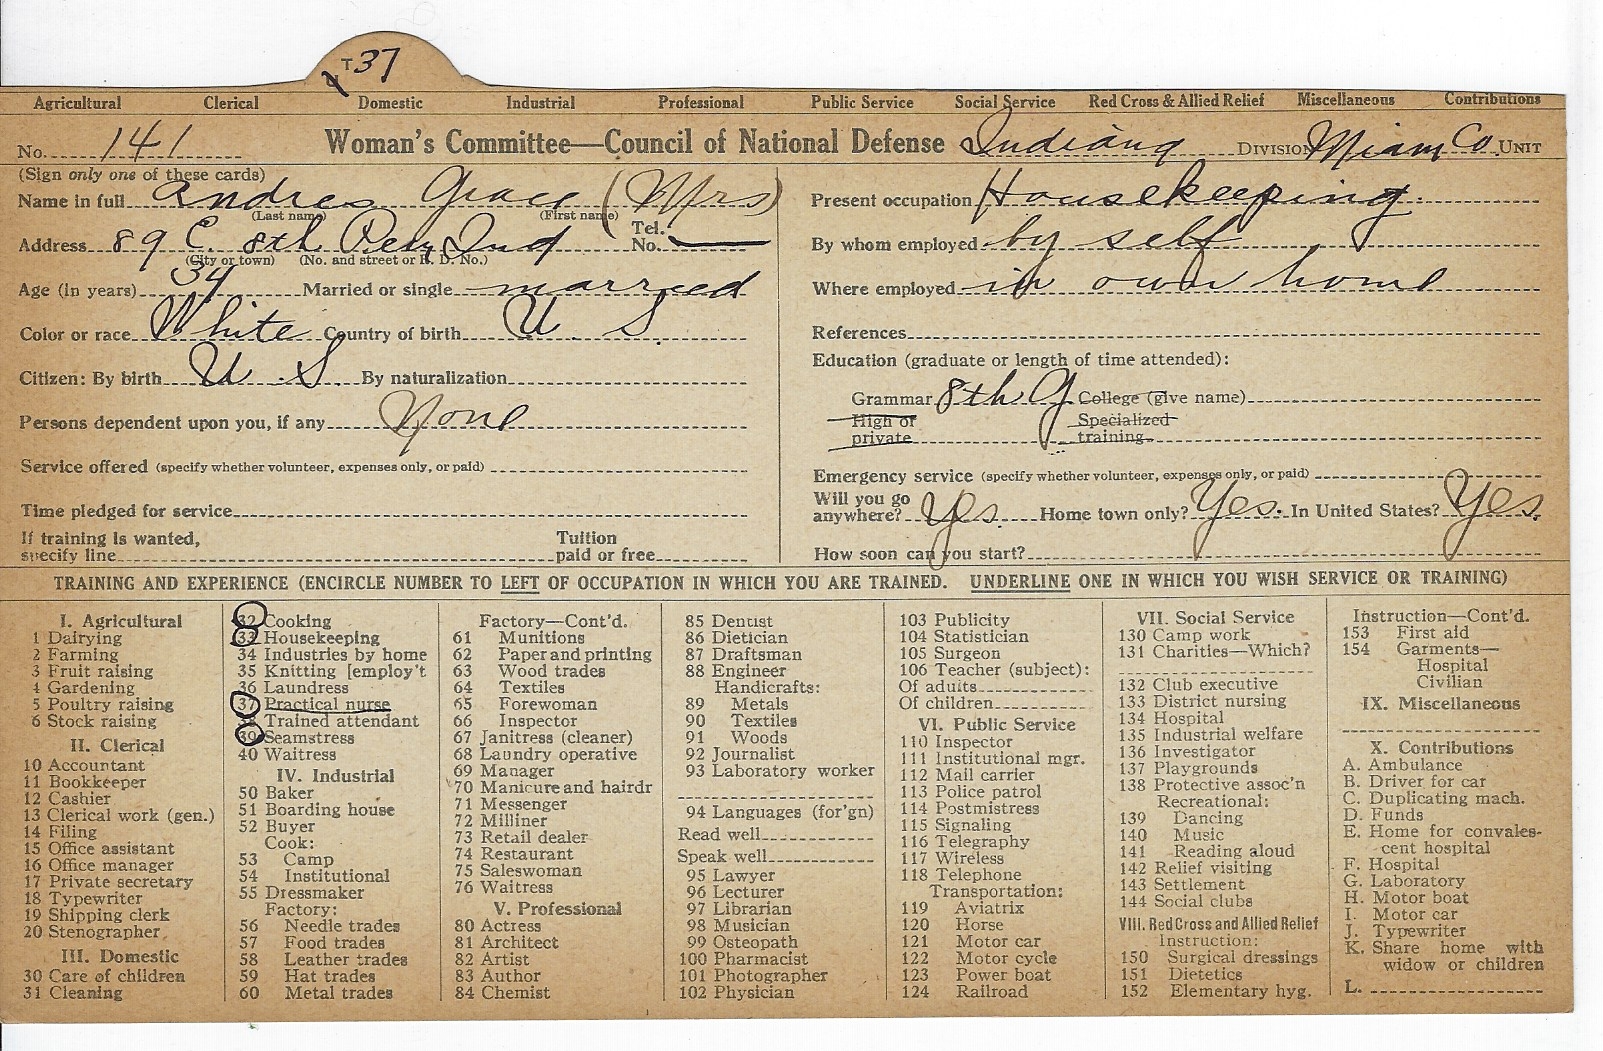 T 37
Agricultural Clerical Domestic Industrial Professional Public Service Social Service Red Cross & Allied Relief Miscellaneous Contributions
No. 141 Woman's Committee—Council of National Defense Indiana DIVISION Miami Co. UNIT
(Sign only one of these cards)
Name in full Andres Grace (Mrs)
(Last name) (First name)
Address 89 E. 8th Peru Ind Tel. No. —
(City or town) (No. and street or R. D. No.)
Age (in years) 34 Married or single married
Color or race White Country of birth U. S.
Citizen: By birth U. S By naturalization
Persons dependent upon you, if any None
Service offered (specify whether volunteer, expenses only, or paid)
Time pledged for service
If training is wanted,
specify line
Tuition
paid or free
Present occupation Housekeeping.
By whom employed by self
Where employed in own home
References
Education (graduate or length of time attended):
Grammar 8th G College (give name)
High or
private
Specialized
training
Emergency service (specify whether volunteer, expenses only, or paid)
Will you go
anywhere? yes Home town only? Yes. In United States? Yes.
How soon can you start?
TRAINING AND EXPERIENCE (ENCIRCLE NUMBER TO LEFT OF OCCUPATION IN WHICH YOU ARE TRAINED. UNDERLINE ONE IN WHICH YOU WISH SERVICE OR TRAINING)
I. Agricultural
1 Dairying
2 Farming
3 Fruit raising
4 Gardening
5 Poultry raising
6 Stock raising
II. Clerical
10 Accountant
11 Bookkeeper
12 Cashier
13 Clerical work (gen.)
14 Filing
15 Office assistant
16 Office manager
17 Private secretary
18 Typewriter
19 Shipping clerk
20 Stenographer
III. Domestic
30 Care of children
31 Cleaning
32 Cooking
33 Housekeeping
34 Industries by home
35 Knitting [employ't
36 Laundress
37 Practical nurse
38 Trained attendant
39 Seamstress
40 Waitress
IV. Industrial
50 Baker
51 Boarding house
52 Buyer
Cook:
53 Camp
54 Institutional
55 Dressmaker
Factory:
56 Needle trades
57 Food trades
58 Leather trades
59 Hat trades
60 Metal trades
Factory—Cont'd.
61 Munitions
62 Paper and printing
63 Wood trades
64 Textiles
65 Forewoman
66 Inspector
67 Janitress (cleaner)
68 Laundry operative
69 Manager
70 Manicure and hairdr
71 Messenger
72 Milliner
73 Retail dealer
74 Restaurant
75 Saleswoman
76 Waitress
V. Professional
80 Actress
81 Architect
82 Artist
83 Author
84 Chemist
85 Dentist
86 Dietician
87 Draftsman
88 Engineer
Handicrafts:
89 Metals
90 Textiles
91 Woods
92 Journalist
93 Laboratory worker
94 Languages (for'gn)
Read well
Speak well
95 Lawyer
96 Lecturer
97 Librarian
98 Musician
99 Osteopath
100 Pharmacist
101 Photographer
102 Physician
103 Publicity
104 Statistician
105 Surgeon
106 Teacher (subject):
Of adults
Of children
VI. Public Service
110 Inspector
111 Institutional mgr.
112 Mail carrier
113 Police patrol
114 Postmistress
115 Signaling
116 Telegraphy
117 Wireless
118 Telephone
Transportation:
119 Aviatrix
120 Horse
121 Motor car
122 Motor cycle
123 Power boat
124 Railroad
VII. Social Service
130 Camp work
131 Charities—Which?
132 Club executive
133 District nursing
134 Hospital
135 Industrial welfare
136 Investigator
137 Playgrounds
138 Protective assoc'n
Recreational:
139 Dancing
140 Music
141 Reading aloud
142 Relief visiting
143 Settlement
144 Social clubs
VIII. Red Cross and Allied Relief
Instruction:
150 Surgical dressings
151 Dietetics
152 Elementary hyg.
Instruction—Cont'd.
153 First aid
154 Garments—
Hospital
Civilian
IX. Miscellaneous
X. Contributions
A. Ambulance
B. Driver for car
C. Duplicating mach.
D. Funds
E. Home for convales-
cent hospital
F. Hospital
G. Laboratory
H. Motor boat
I. Motor car
J. Typewriter
K. Share home with
widow or children
L.